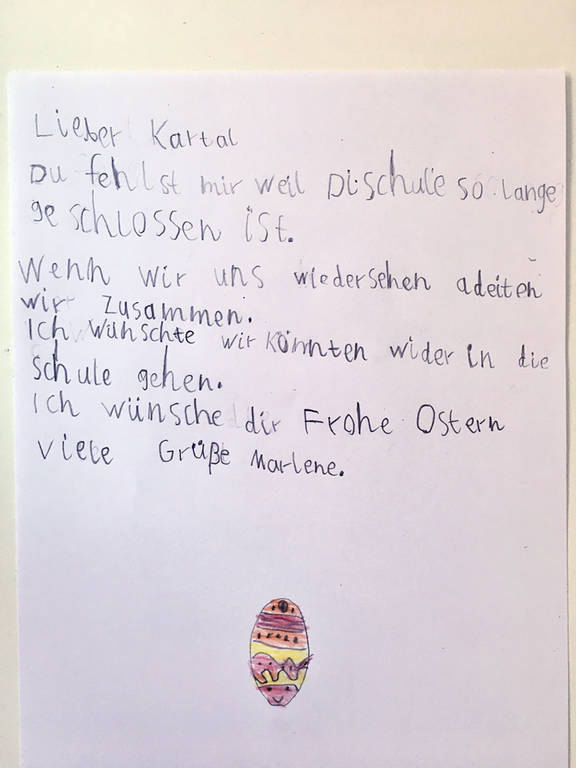 Lieber Kartal
Du fehlst mir weil Dischule so lange
ge schlossen ist.
Wenn wir uns wiedersehen adeiten
wir zusammen.
Ich wünschte wir könnten wider in die
Schule gehen.
Ich wünsche dir Frohe Ostern
Viele Grüße Marlene.